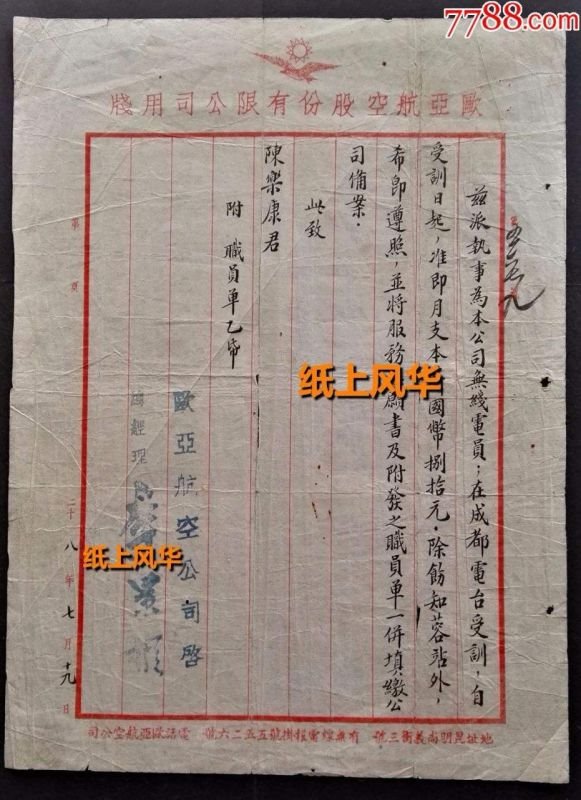 7788.com
歐亞航空股份有限公司用牋
茲派執事為本公司無綫電員；在成都電台受訓，自
受訓日起，准即月支本 國幣捌拾元．除飭知蓉站外，
希即遵照，並將服務 願書及附發之職員單一併填繳公
司備案．
此致
陳樂康君
附 職員單乙帋
纸上风华
歐亞航空公司啓
經理
纸上风华
二十八年七月十九日
第 頁
地址昆明尚義街三號 有無線電報掛號五五二六號 電話歐亞航空公司